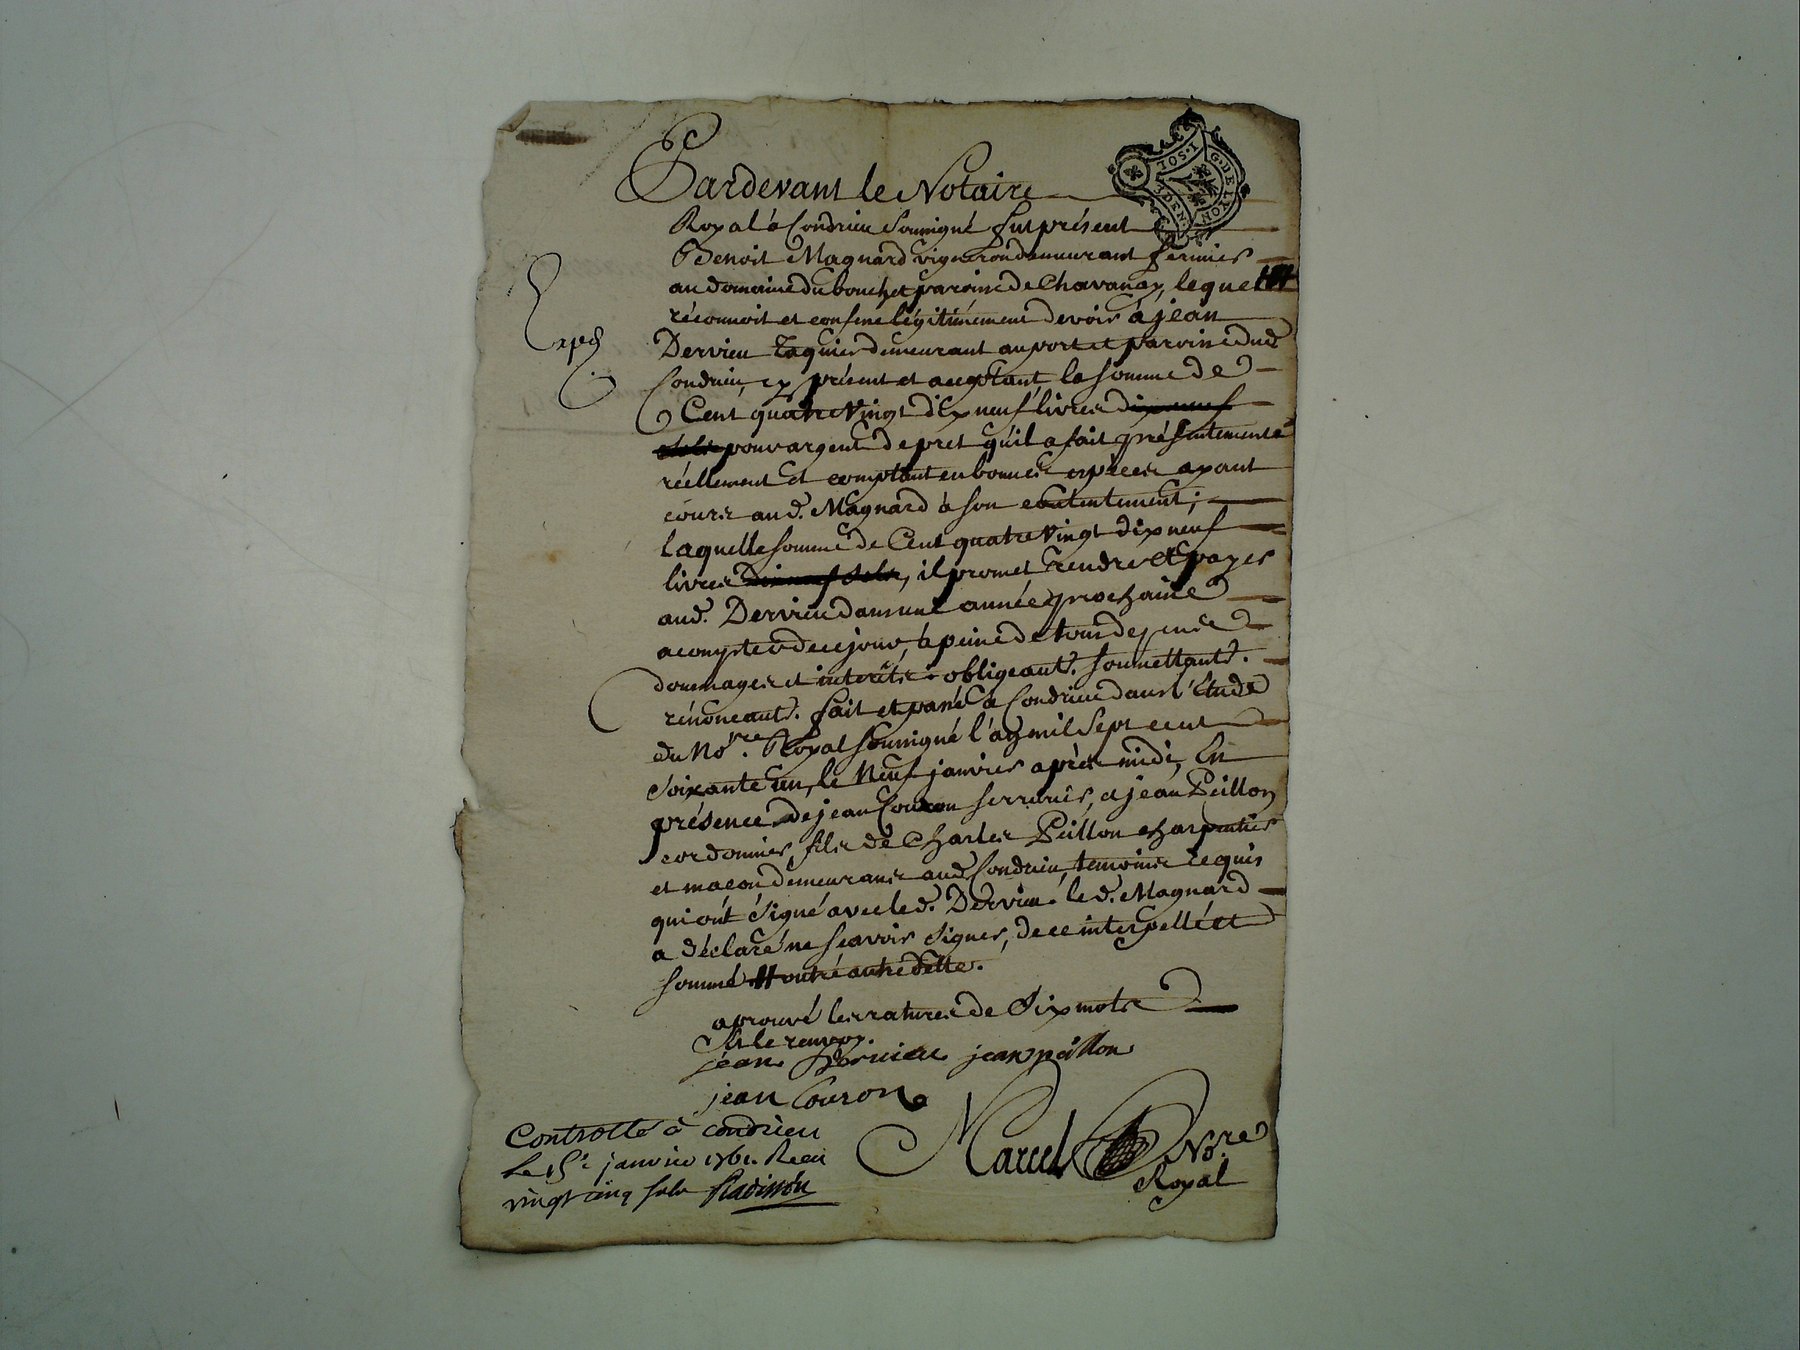 Pardevant le Notaire
G. DE LYON
1. SOL
DEN
Royal à Condrieu Soussigné fut présent
Benoit Magnard vigneron demeurant fermier
au domaine du bouchet paroisse de Chavanay, lequel
réconnoit et confesse légitimement devoir à jean
Expéd
Dervieu demeurant au port et paroisse dud.
Condrieu, cy présent et acceptant la somme de
Cent quatre vingt dix neuf livres dix neuf
sols pour argent de pret qu'il a fait présentement
réellement et comptant en bonnes espèces ayant
cours aud. Magnard à son contentement;
laquelle somme de Cent quatre vingt dix neuf
livres dix neuf sols, il promet rendre et payer
aud. Dervieu dans une année prochaine
a compter de ce jour, à peine de tous depens
dommages et interêts. obligeant. soumettant.
rénonceant. fait et passé à Condrieu dans l'Etude
du No.re Royal soussigné l'an mil sept cent
soixante un, le Neuf janvier après midi, En
présence de jean Couron serrurier, et jean Peillon
cordonnier, fils de Charles Peillon charpentier
et maçon, demeurans aud. Condrieu, temoins requis
qui ont signé avec led. Dervieu. led. Magnard
a déclaré ne scavoir signer, de ce interpellé et
sommé # outre autre dette.
aprouvé les ratures de Six mots
Et le renvoy.
jean Dervieu jean peillon
jean Couron
Controllé à condrieu
Le 15e janvier 1761. Recu
vingt cinq sols
Marcel No.re
Royal